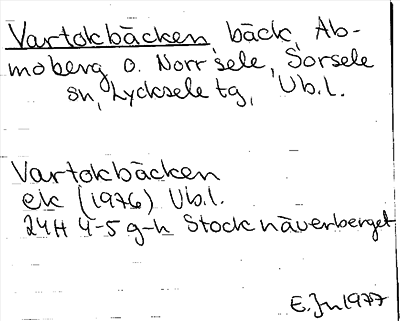 Vartokbäcken, bäck, Ab-
moberg o. Norrsele, Sorsele
sn, Lycksele tg, Vb.l.
Vartokbäcken
ek (1976) Vb.l.
24H 4-5 g-h Stocknäverberget
E. Jn 1977